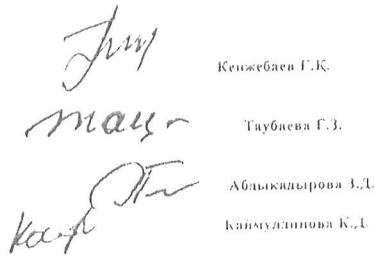 Кенжебаев Г.Қ.
Таубаева Г.З.
Абдыкадырова З.Д.
Каймулдинова К.Д.